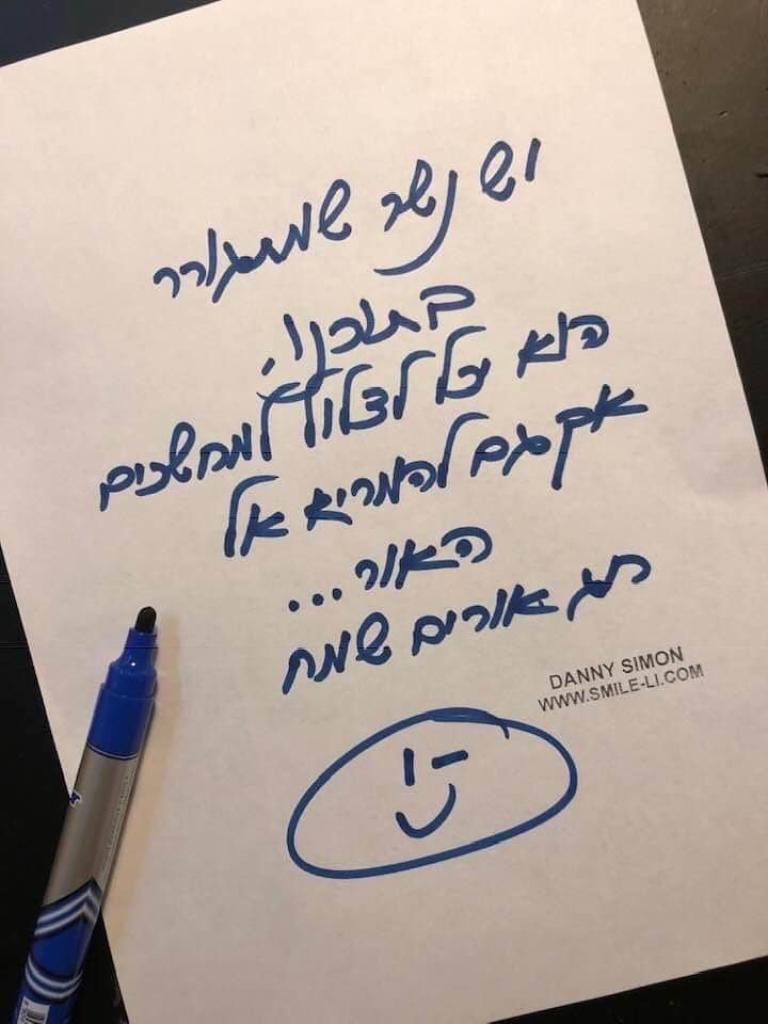 יש נשר שמתגורר
בתוכנו.
הוא יכל לצלול למחשכים
אך גם להמריא אל
האור...
חג אורים שמח
DANNY SIMON
WWW.SMILE-LI.COM